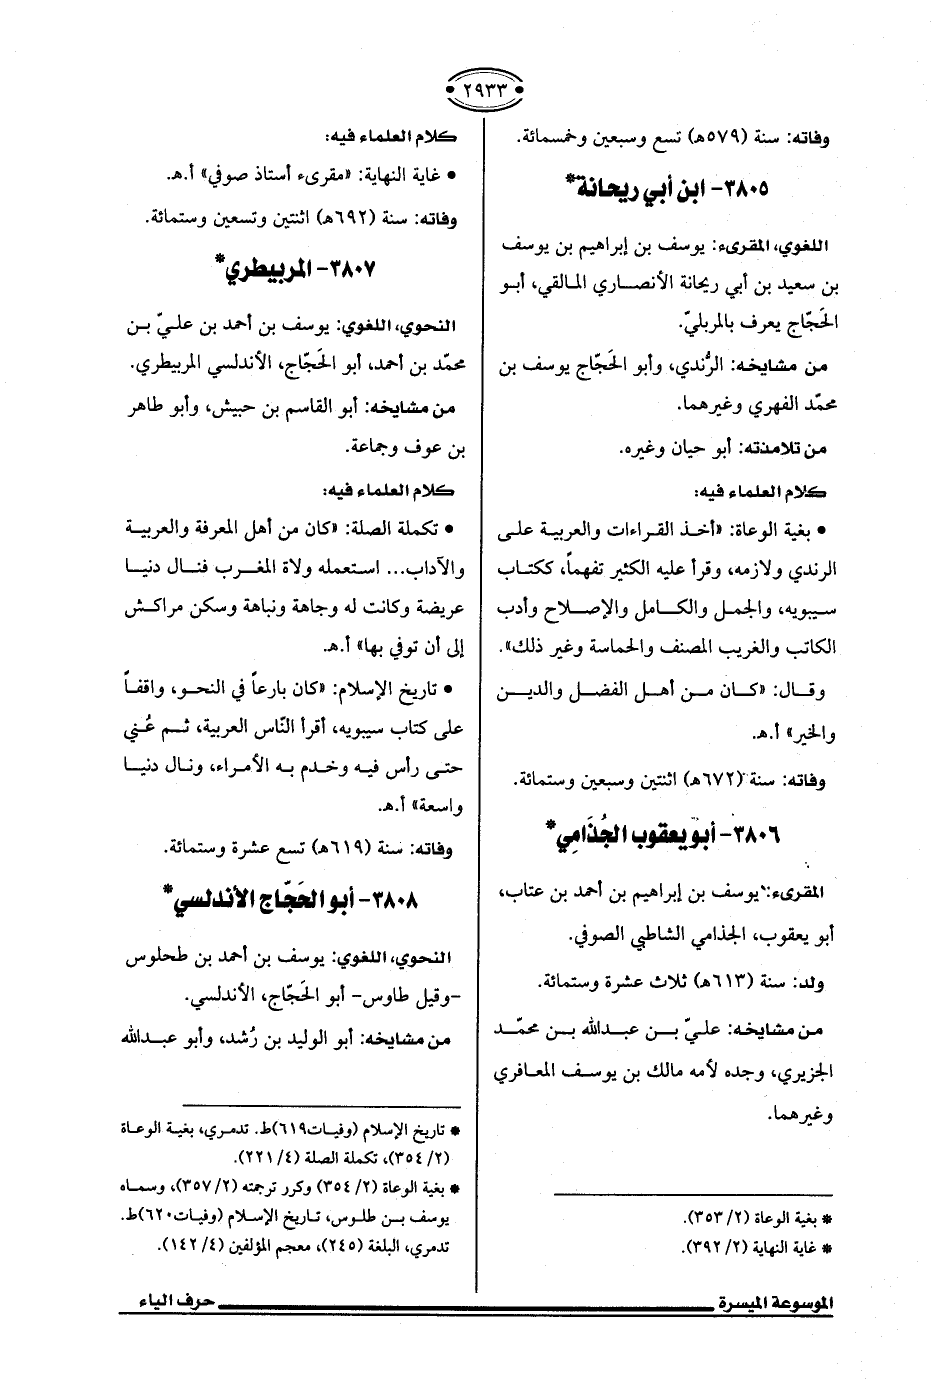 ٢٩٣٣
وفاته: سنة (٥٧٩هـ) تسع وسبعين وخمسمائة.
٣٨٠٥- ابن أبي ريحانة*
اللغوي، المقرىء: يوسف بن إبراهيم بن يوسف
بن سعيد بن أبي ريحانة الأنصاري المالقي، أبو
الحَجّاج يعرف بالمربليّ.
من مشايخه: الرُّندي، وأبو الحَجّاج يوسف بن
محمّد الفهري وغيرهما.
من تلامذته: أبو حيان وغيره.
كلام العلماء فيه:
• بغية الوعاة: «أخذ القراءات والعربية على
الرندي ولازمه، وقرأ عليه الكثير تفهماً، ككتاب
سيبويه، والجمل والكامل والإصلاح وأدب
الكاتب والغريب المصنف والحماسة وغير ذلك».
وقال: «كان من أهل الفضل والدين
والخير» أ.هـ.
وفاته: سنة (٦٧٢هـ) اثنتين وسبعين وستمائة.
٣٨٠٦- أبو يعقوب الجُذَامِي*
المقرىء: يوسف بن إبراهيم بن أحمد بن عتاب،
أبو يعقوب، الجذامي الشاطبي الصوفي.
ولد: سنة (٦١٣هـ) ثلاث عشرة وستمائة.
من مشايخه: عليّ بن عبدالله بن محمّد
الجزيري، وجده لأمه مالك بن يوسف المعافري
وغيرهما.
* بغية الوعاة (٢/ ٣٥٣).
* غاية النهاية (٢/ ٣٩٢).
كلام العلماء فيه:
• غاية النهاية: «مقرىء أستاذ صوفي» أ.هـ.
وفاته: سنة (٦٩٢هـ) اثنتين وتسعين وستمائة.
٣٨٠٧- المربيطري*
النحوي، اللغوي: يوسف بن أحمد بن عليّ بن
محمّد بن أحمد، أبو الحَجّاج، الأندلسي المربيطري.
من مشايخه: أبو القاسم بن حبيش، وأبو طاهر
بن عوف وجماعة.
كلام العلماء فيه:
• تكملة الصلة: «كان من أهل المعرفة والعربية
والآداب... استعمله ولاة المغرب فنال دنيا
عريضة وكانت له وجاهة ونباهة وسكن مراكش
إلى أن توفي بها» أ.هـ.
• تاريخ الإسلام: «كان بارعاً في النحو، واقفاً
على كتاب سيبويه، أقرأ النّاس العربية، ثم عُني
حتى رأس فيه وخدم به الأمراء، ونال دنيا
واسعة» أ.هـ.
وفاته: سنة (٦١٩هـ) تسع عشرة وستمائة.
٣٨٠٨- أبو الحَجّاج الأندلسي*
النحوي، اللغوي: يوسف بن أحمد بن طحلوس
-وقيل طاوس- أبو الحَجّاج، الأندلسي.
من مشايخه: أبو الوليد بن رُشد، وأبو عبدالله
* تاريخ الإسلام (وفيات٦١٩)ط. تدمري، بغية الوعاة
(٢/ ٣٥٤)، تكملة الصلة (٤/ ٢٢١).
* بغية الوعاة (٢/ ٣٥٤) وكرر ترجمته (٢/ ٣٥٧)، وسماه
يوسف بن طلوس، تاريخ الإسلام (وفيات٦٢٠)ط.
تدمري، البلغة (٢٤٥)، معجم المؤلفين (٤/ ١٤٢).
الموسوعة الميسرة حرف الياء